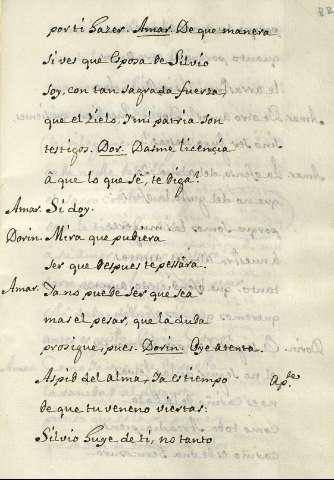 por ti hazer. Amar. De que manera
si ves que Esposa de Silvio
soy, con tan sagrada fuerza,
que el Zielo, Y mi patria son
testigos. Dor. Dasme licençia
â que lo que sê, te diga?
Amar. Si doy.
Dorin. Mira que pudiera
ser que despues te pessâra.
Amar. Ya no puede ser que sea
mas el pesar, que la duda
prosigue, pues. Dorin. Oye atenta.
Aspid del Alma, Ya es tiempo Ap.te
de que tu veneno viertas:
Silvio huye de ti, no tanto